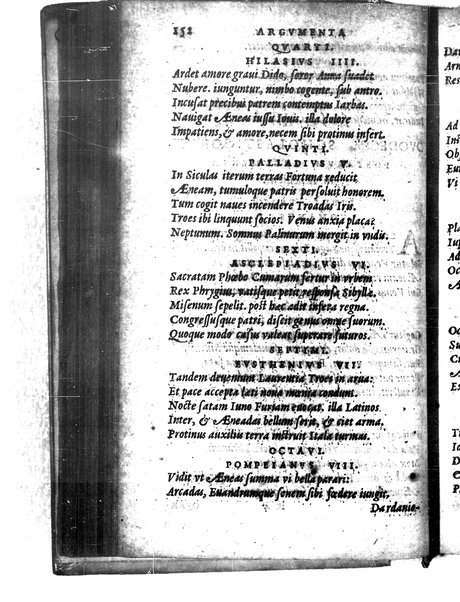 152 ARGVMENTA
QVARTI.
HILASIVS IIII.
Ardet amore graui Dido, soror Anna suadet
Nubere. iunguntur, nimbo cogente, sub antro.
Incusat precibus patrem contemptus Iarbas.
Nauigat Æneas iussu Iouis. illa dolore
Impatiens, & amore, necem sibi protinus infert.
QVINTI.
PALLADIVS V.
In Siculas iterum terras Fortuna reducit
Æneam, tumuloque patris persoluit honorem.
Tum cogit naues incendere Troadas Iris.
Troes ibi linquunt socios. Venus anxia placat
Neptunum. Somnus Palinurum mergit in vndis.
SEXTI.
ASCLEPIADIVS VI.
Sacratam Phœbo Cumarum fertur in vrbem
Rex Phrygius, vatisque petit responsa Sibyllæ.
Misenum sepelit. post hæc adit infera regna.
Congressusque patri, discit genus omne suorum.
Quoque modo casus valeat superare futuros.
SEPTIMI.
EVSTHENIVS VII.
Tandem deuenium Laurentia Troes in arua:
Et pace accepta læti noua mœnia condunt.
Nocte satam Iuno Furiam euocat. illa Latinos
Inter, & Æneadas bellum serit, & ciet arma.
Protinus auxiliis terra instruit Itala turmas.
OCTAVI.
POMPEIANVS VIII.
Vidit vt Æneas summa vi bella parari:
Arcadas, Euandrumque senem sibi fœdere iungit,
Dardanie-